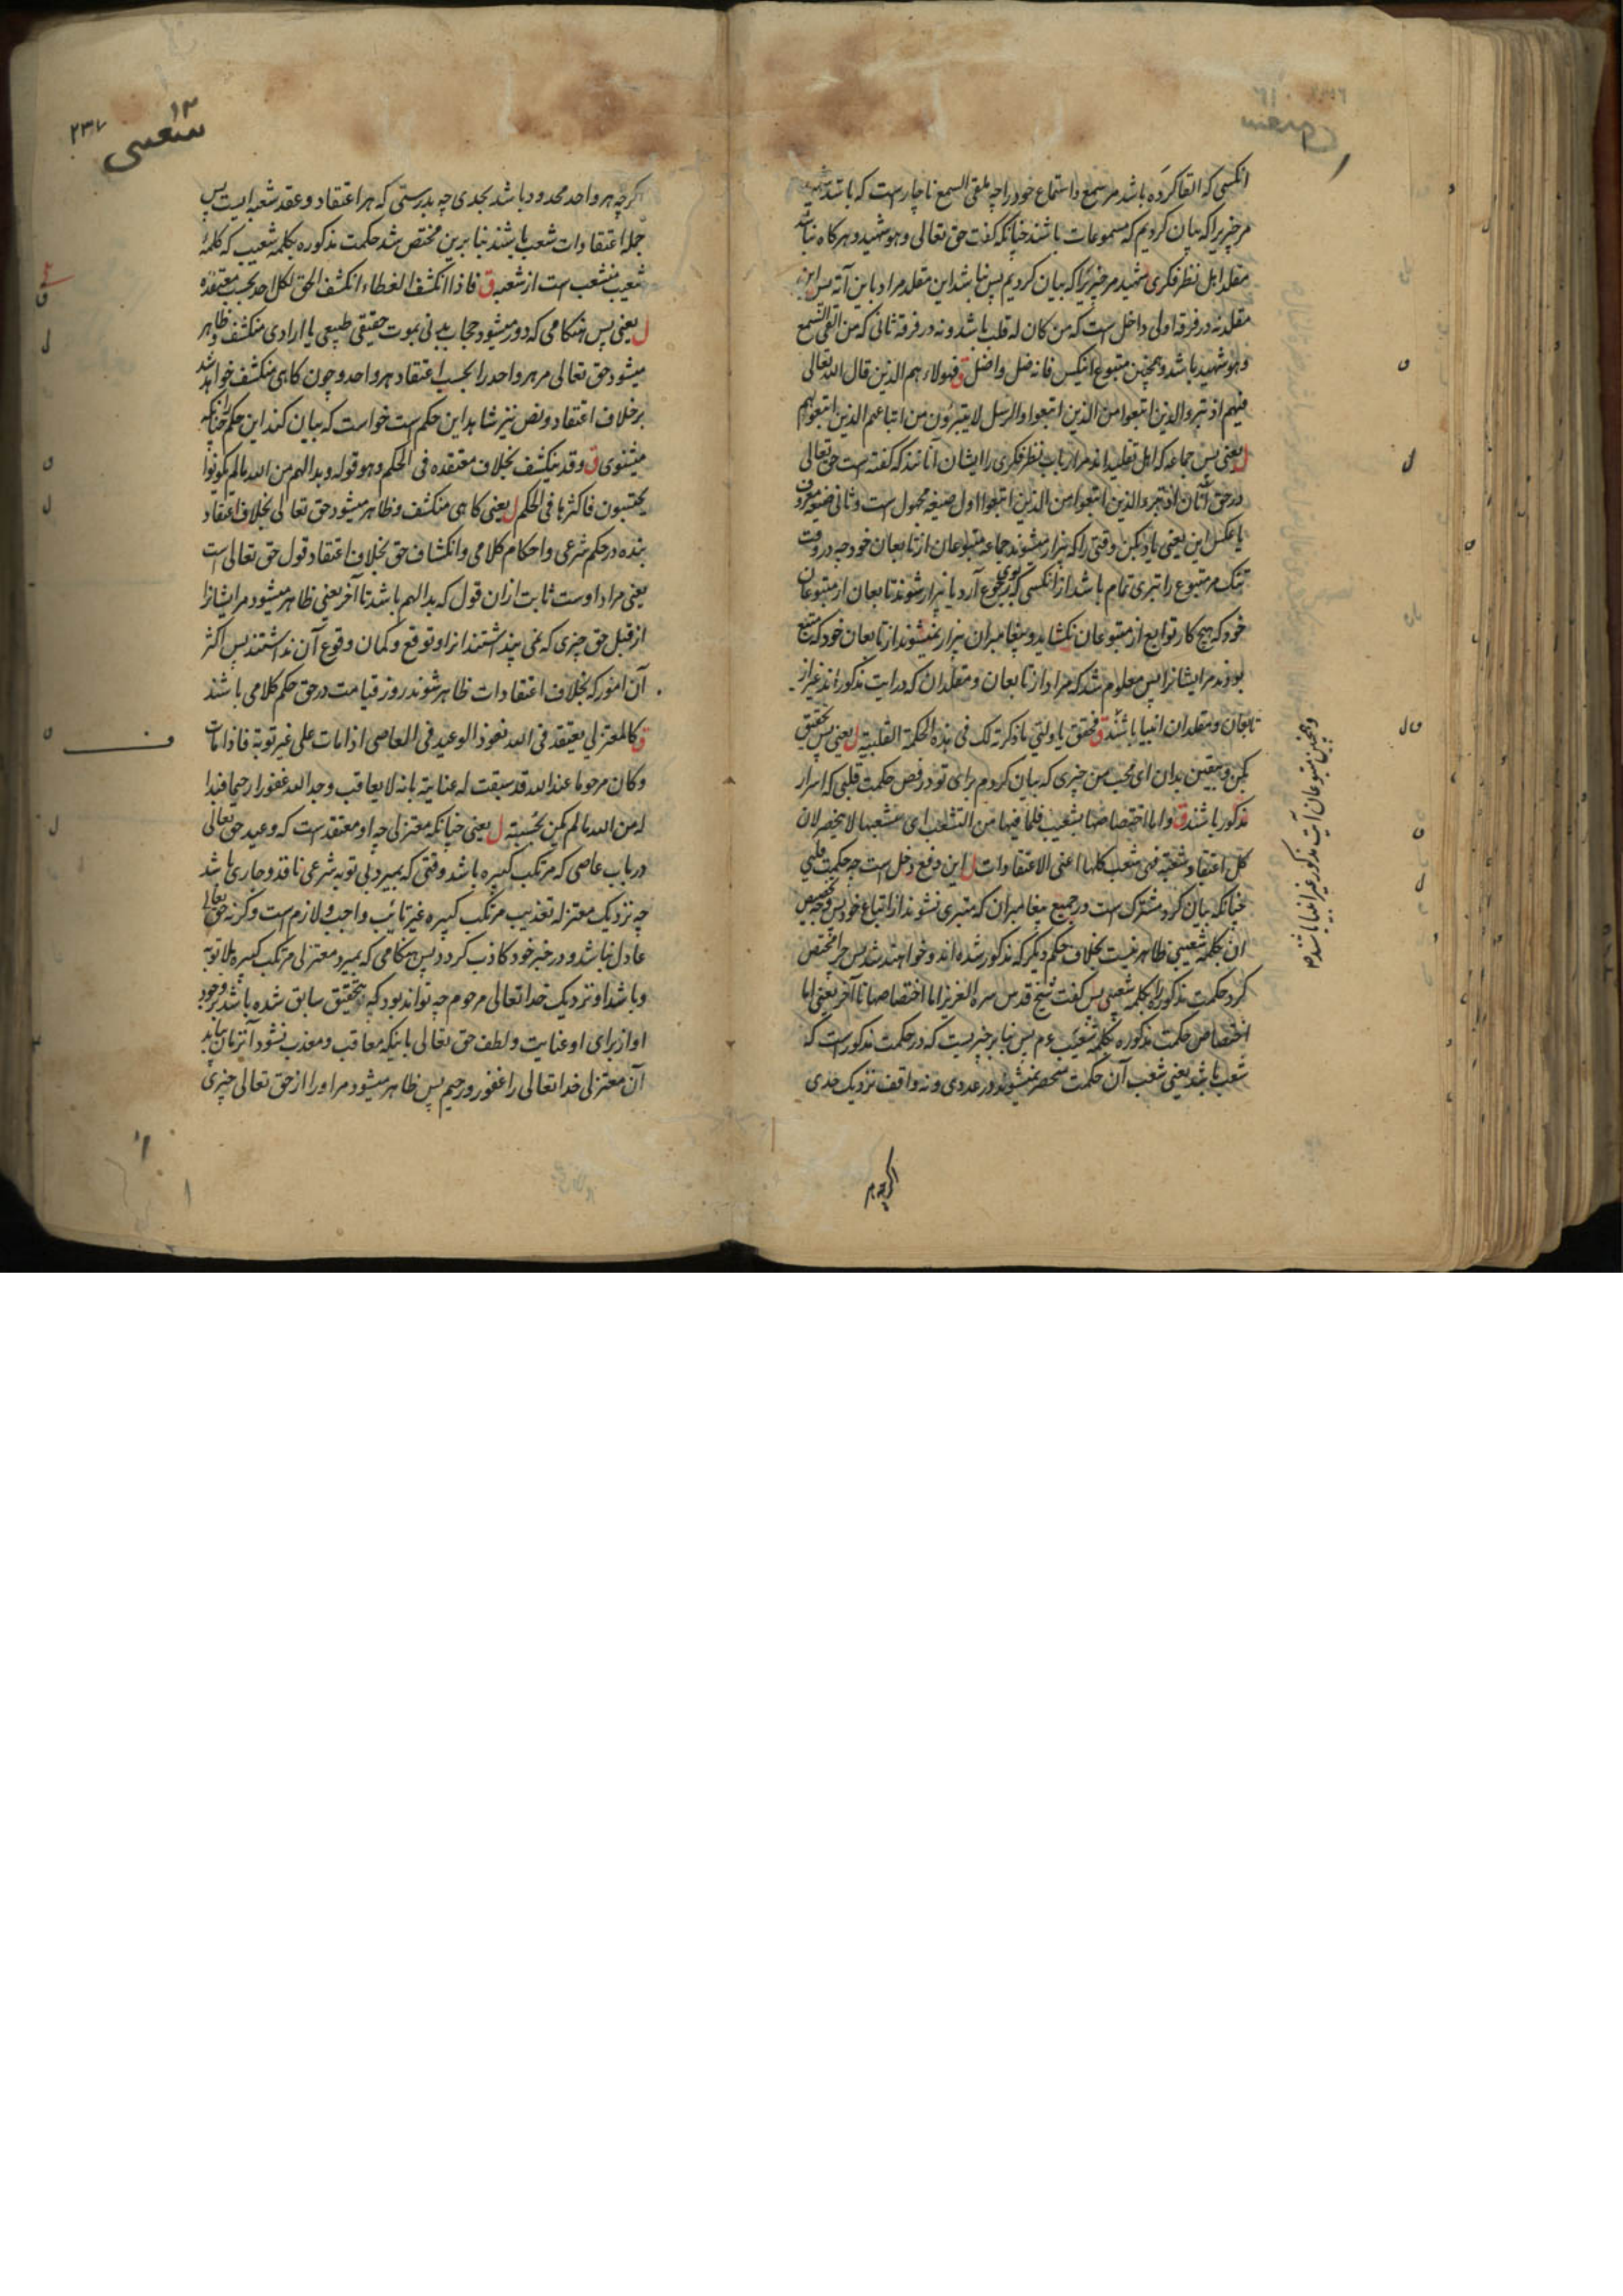 انکسی که القا کرده باشد مر سمع و استماع خود را چه ملقی السمع ناچارست که باشد شهید
مر چیزیرا که بیان کردیم که مسموعات باشند چنانکه کفت حق تعالی و هو شهید و هرکاه نباشد
مقلد اهل نظر فکری شهید مر چیزیرا که بیان کردیم پس نباشد این مقلد مراد باین آیه پس این
مقلد نه در فرقه اولی داخل است که من کان له قلب باشد و نه در فرقه ثانی که من القی السمع
و هو شهید باشد و همچنین متبوع اینکس فانه ضل و اضل ق فهولاء هم الذین قال الله تعالی
فیهم اذ تبرو الذین اتبعوا من الذین اتبعوا والرسل لا یتبرؤن من اتباعهم الذین اتبعوهم
ل یعنی پس جماعه که اهل تقلیداند مر ارباب نظر فکری را ایشان آنانند که کفته است حق تعالی
در حق آنان اذ تبرء الذین اتبعوا من الذین اتبعوا اول صیغه مجهول است و ثانی صیغه معروف
یا عکس این یعنی یاد بکن وقتی را که بیزار میشوند جماعه متبوعان از تابعان خود چه در وقت
تنک مر متبوع را تبری تمام باشد از انکسی که بوی رجوع آرد یا بیزار شوند تابعان از متبوعان
خود که هیچ کار توابع از متبوعان نکشاید و پیغامبران بیزار نمیشوند از تابعان خود که متبع
بودند مر ایشانرا پس معلوم شد که مراد از تابعان و مقلدان که در ایت مذکوراند غیر از
تابعان و مقلدان انبیا باشند ق فحقق یا ولیی ما ذکرته لک فی هذه الحکمة القلبیة ل یعنی پس تحقیق
بکن و بیقین بدان ای محب من چیزی که بیان کردم برای تو در فص حکمت قلبی که اسرار
مذکور باشند ق و اما اختصاصها بشعیب فلما فیها من التشعب ای شعبها لا ینحصر لان
کل اعتقاد شعبة فهی شعب کلها اعنی الاعتقادات ل این دفع دخل است چه حکمت قلبی
چنانکه بیان کرد مشترک است در جمیع پیغامبران که متبری نشوند از اتباع خود پس وجه تخصیص
ان بکلمه شعیبی ظاهر نیست بخلاف حکم دیکر که مذکور شده اند و خواهند شد پس چرا مختص
کرد حکمت مذکوره را بکلمه شعیبی پس کفت شیخ قدس سره العزیز اما اختصاصها تا آخر یعنی اما
اختصاص حکمت مذکوره بکلمه شعیب ع م پس بنا بر چیزیست که در حکمت مذکورست که
شعب باشد یعنی شعب آن حکمت منحصر نمیشوند در عددی و نه واقف نزدیک حدی
و همچنین متبوعان آیت مذکور غیر انبیا باشند م
اکرچه هر
۱۳
۲۳۷
شعیبی
کرچه هر واحد محدود باشد بحدی چه بدرستی که هر اعتقاد و عقد شعبه ایست پس
جمله اعتقادات شعب باشند بنا برین مختص شد حکمت مذکوره بکلمه شعیب که کلمه
شعیب منشعب است از شعبه ق فاذا انکشف الغطاء انکشف الحق لکل احد بحسب معتقده
ل یعنی پس هنکامی که دور میشود حجاب بدنی بموت حقیقی طبیعی یا ارادی منکشف و ظاهر
میشود حق تعالی مر هر واحد را بحسب اعتقاد هر واحد و چون کاهی منکشف خواهد شد
بر خلاف اعتقاد و نص نیز شاهد این حکم است خواست که بیان کند این حکم را چنانکه
میشنوی ق و قد ینکشف بخلاف معتقده فی الحکم و هو قوله و بدا لهم من الله مالم یکونوا
یحتسبون فاکثرها فی الحکم ل یعنی کاهی منکشف و ظاهر میشود حق تعالی بخلاف اعتقاد
بنده در حکم شرعی و احکام کلامی و انکشاف حق بخلاف اعتقاد قول حق تعالی است
یعنی مراد اوست ثابت ازان قول که بدا لهم باشد تا آخر یعنی ظاهر میشود مر ایشانرا
از قبل حق چیزی که نمی پنداشتند انرا و توقع و کمان وقوع آن نداشتند پس اکثر
آن امور که بخلاف اعتقادات ظاهر شوند روز قیامت در حق حکم کلامی باشند
ق کالمعتزلی یعتقد فی الله نفوذ الوعید فی العاصی اذا مات علی غیر توبة فاذا مات
و کان مرحوما عند الله قد سبقت له عنایته بانه لا یعاقب وجد الله غفورا رحیما فبدا
له من الله مالم یکن یحتسبه ل یعنی چنانکه معتزلی چه او معتقد است که وعید حق تعالی
در باب عاصی که مرتکب کبیره باشد وقتی که بمیرد بی توبه شرعی نافذ و جاری باشد
چه نزدیک معتزله تعذیب مرتکب کبیره غیر تائب واجب و لازم است و کرنه حق تعالی
عادل نباشد و در خبر خود کاذب کردد پس هنکامی که بمیرد معتزلی مرتکب کبیره بلا توبه
و باشد او نزدیک خدا تعالی مرحوم چه تواند بود که بتحقیق سابق شده باشد بر وجود
او از برای او عنایت و لطف حق تعالی باینکه معاقب و معذب نشود آنزمان بیابد
آن معتزلی خدا تعالی را غفور و رحیم پس ظاهر میشود مر او را از حق تعالی چیزی